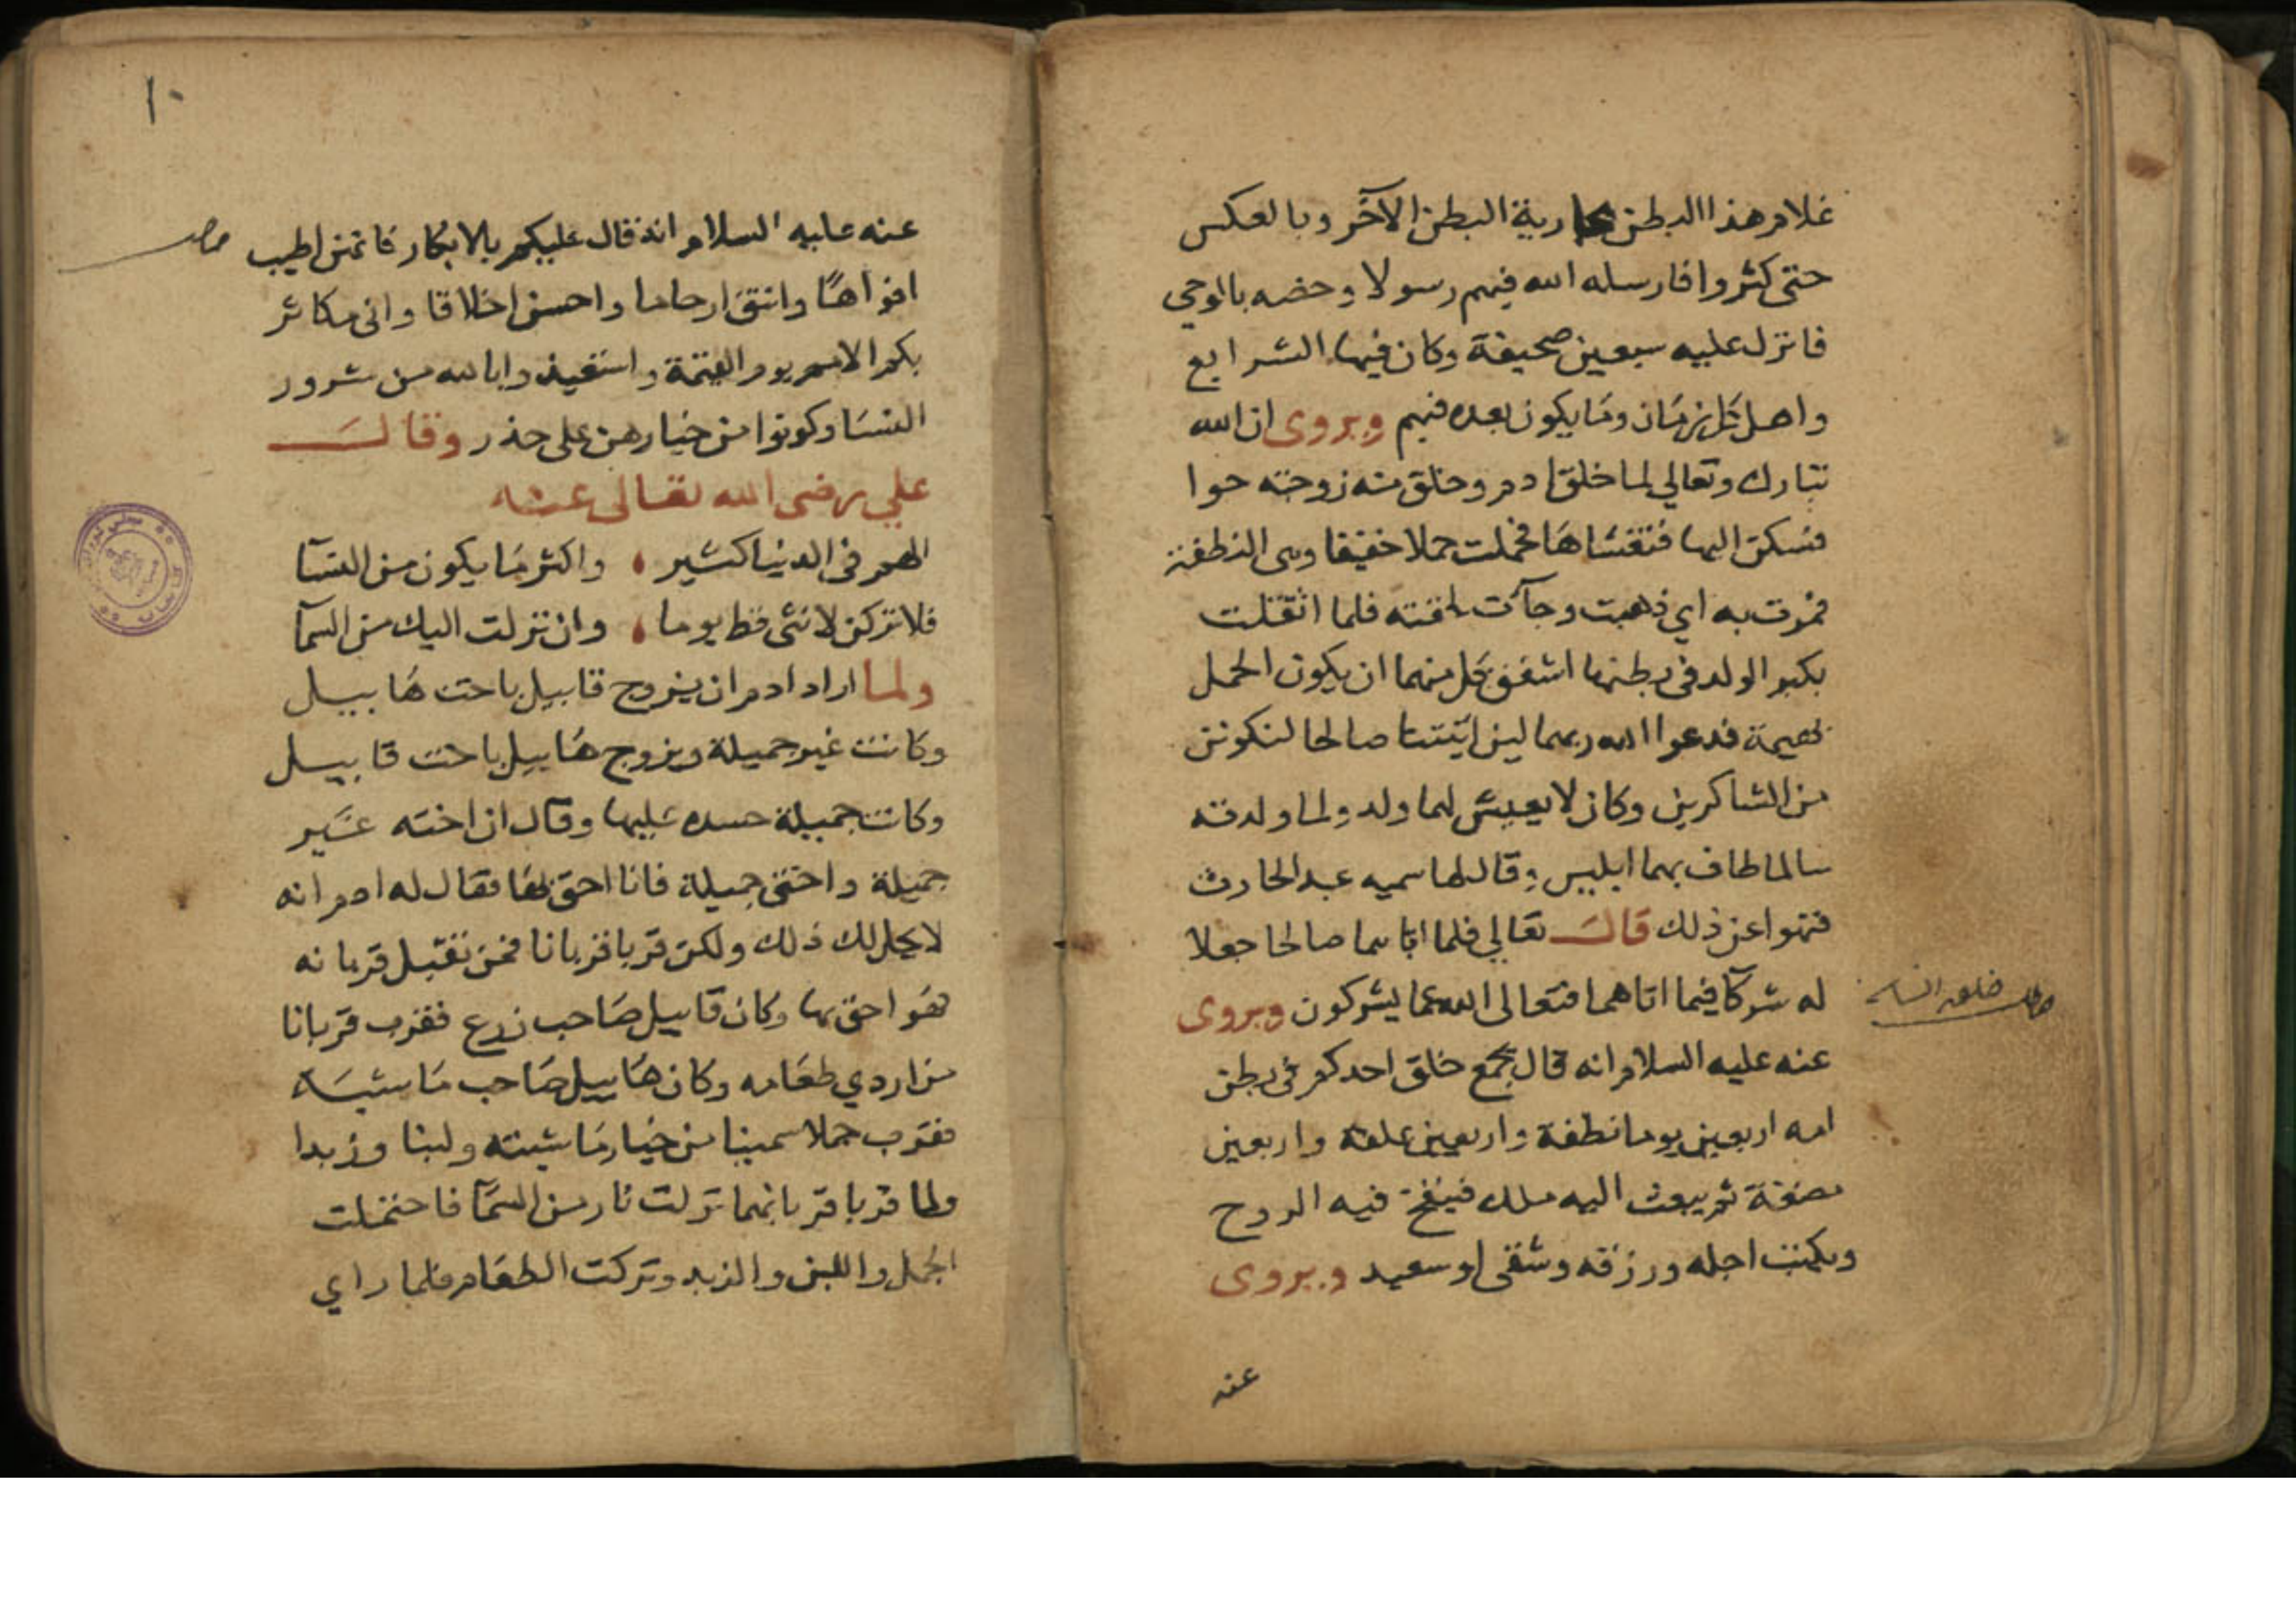 غلام هذا البطن بجارية البطن الآخر وبالعكس
حتى كثروا فارسله الله فيهم رسولا وخصه بالوحي
فانزل عليه سبعين صحيفة وكان فيها الشرايع
واهل كل زمان وما يكون بعده فيهم ويروى ان الله
تبارك وتعالي لما خلق ادم وخلق منه زوجته حوا
فسكن اليها فتغشاها فحملت حملا خفيفا وهي النطفة
فمرت به اي ذهبت وجآت لخفته فلما اثقلت
بكبر الولد في بطنها اشفق كل منهما ان يكون الحمل
بهيمة فدعوا الله ربهما لين اتيتنا صالحا لنكونن
من الشاكرين وكان لا يعيش لهما ولد ولما ولدته
سالما طاف بهما ابليس وقال لهما سميه عبد الحارث
فنهوا عن ذلك قال تعالي فلما اتاهما صالحا جعلا
له شركآ فيما اتاهما فتعالى الله عما يشركون ويروى
خلق
عنه عليه السلام انه قال يجمع خلق احدكم في بطن
امه اربعين يوما نطفة واربعين علقة واربعين
مضغة ثم يبعث اليه ملك فينفخ فيه الروح
ويكتب اجله ورزقه وشقى او سعيد ويروى
عنه
١٠
عنه عليه السلام انه قال عليكم بالابكار فانهن اطيب
افواها وانتق ارحاما واحسن اخلاقا واني مكاثر
بكم الامم يوم القيمة واستعيذوا بالله من شرور
النسا وكونوا من خيارهن على حذر وقال
علي رضى الله تعالى عنه
الهم في الدنيا كثير ، واكثر ما يكون من النسآ
فلا تركن لانثى قط يوما ، وان نزلت اليك من السمآ
ولما اراد ادم ان يزوج قابيل باخت هابيل
وكانت غير جميلة ويزوج هابيل باخت قابيل
وكانت جميلة حسده عليها وقال ان اخته غير
جميلة واختى جميلة فانا احق بها فقال له ادم انه
لا يحل لك ذلك ولكن قربا قربانا فمن تقبل قربانه
فهو احق بها وكان قابيل صاحب زرع فقرب قربانا
من اردي طعامه وكان هابيل صاحب ماشية
فقرب حملا سمينا من خيار ماشيته ولبنا وزبدا
ولما قربا قربانهما نزلت نار من السمآ فاحتملت
الجمل واللبن والزبد وتركت الطعام فلما راي